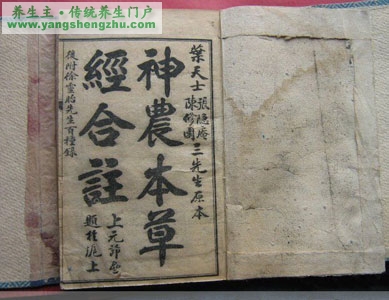 养生主·传统养生门户
www.yangshengzhu.com
葉天士
張隱庵
陳修園
三先生原本
神農本草
經合註
上元節後
題於滬上
後附徐靈胎先生百種錄